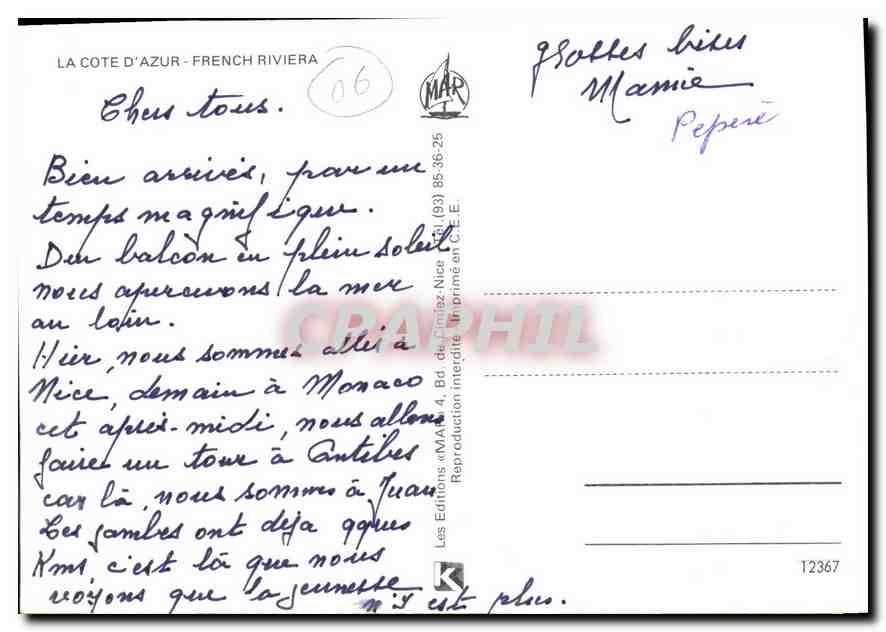 LA COTE D'AZUR - FRENCH RIVIERA
06
MAR
Chers tous.
Bien arrivés, par un
temps magnifique.
Du balcon en plein soleil
nous apercevons la mer
au loin.
Hier, nous sommes allés à
Nice, demain à Monaco
cet après-midi, nous allons
faire un tour à Antibes
car là, nous sommes à Juan
Les jambes ont déja qques
Kms, c'est là que nous
voyons que la jeunesse
n'y est plus.
Grosses bises
Mamie
Peperé
Les Editions «MAR» 4, Bd. de Cimiez-Nice Tél.(93) 85-36-25
Reproduction interdite Imprimé en C.E.E.
K
CPAPHIL
T2367